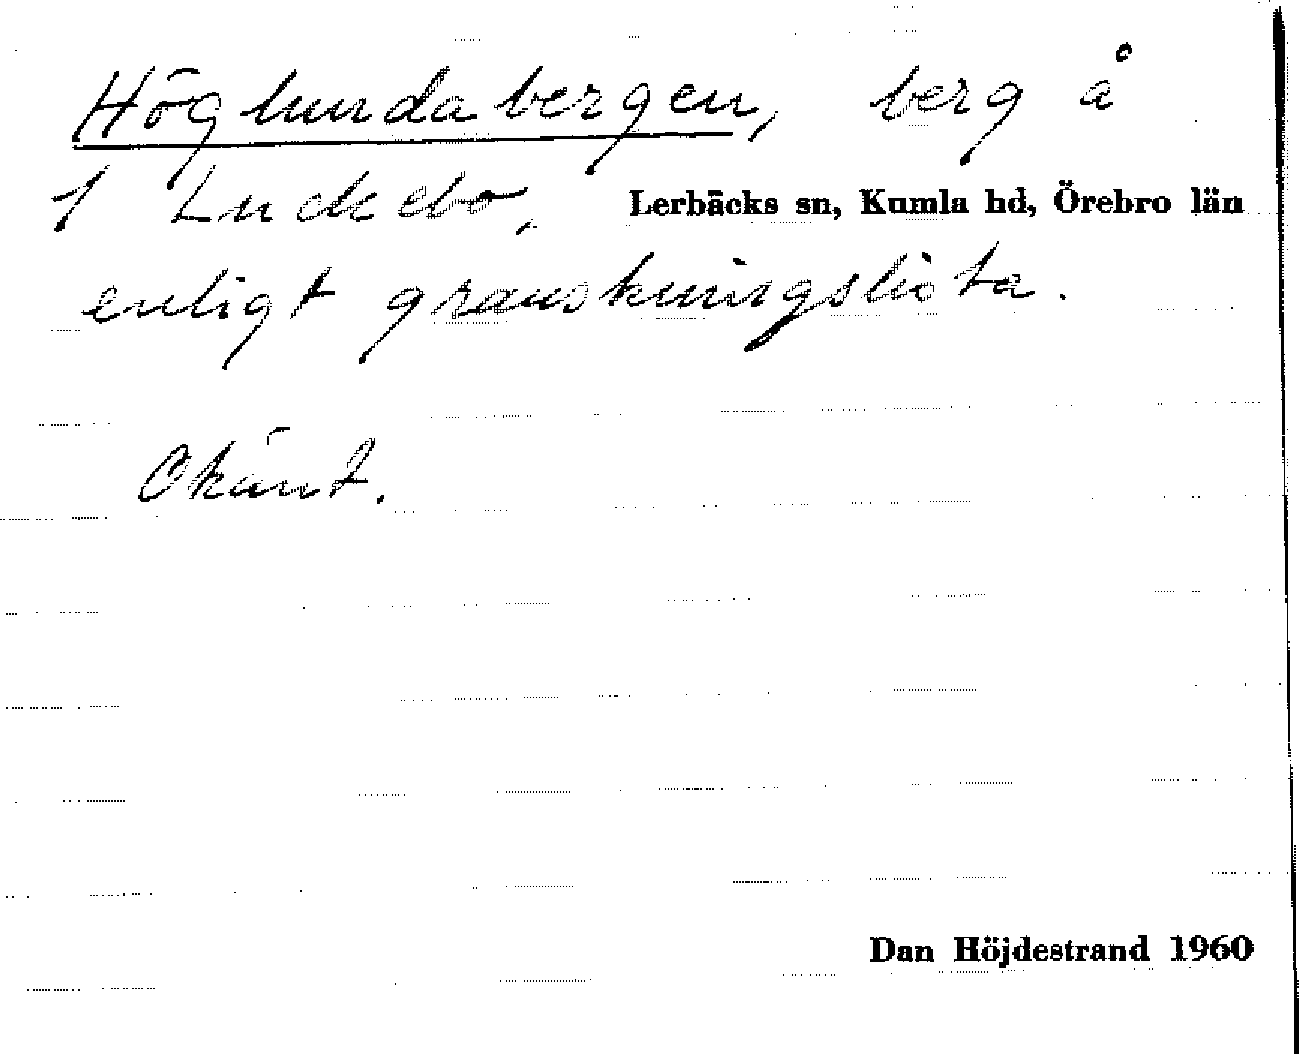 Höglundabergen, berg å
1 Luckebo, Lerbäcks sn, Kumla hd, Örebro län
enligt granskningslista.
Okänt.
Dan Höjdestrand 1960